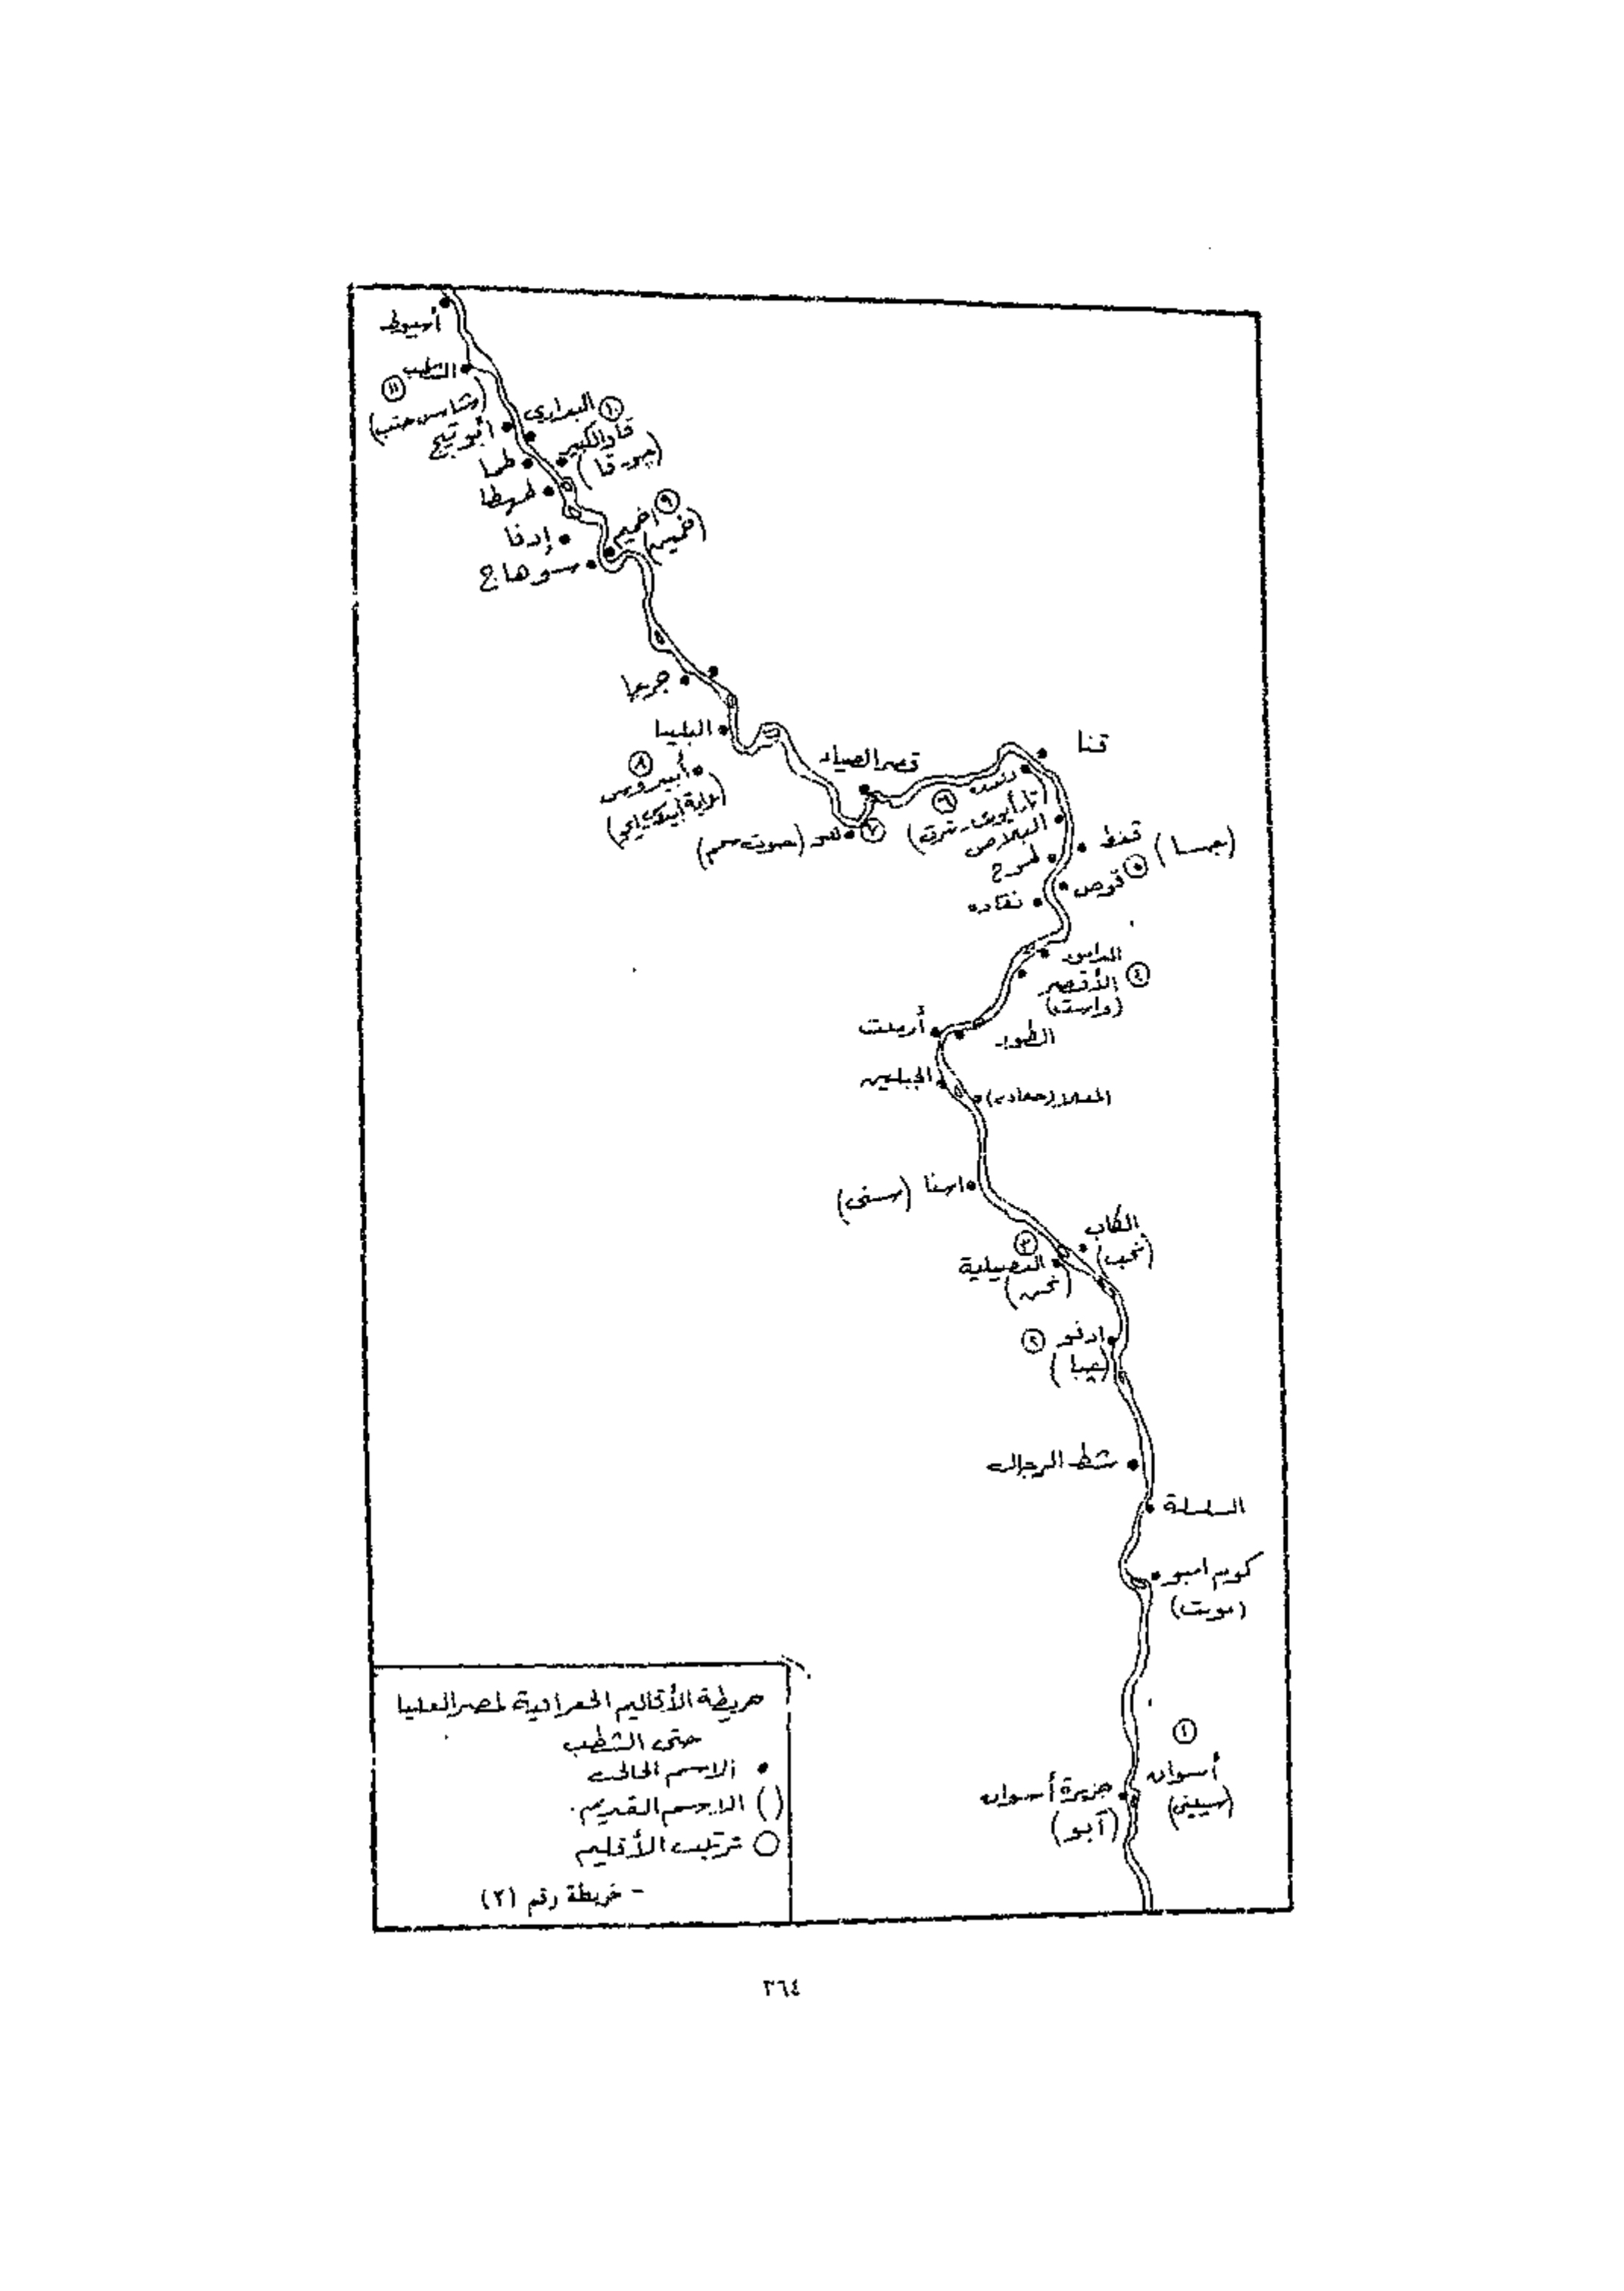 أسيوط
الشطب
١١
(شاس حتب)
أبو تيج
البداري
١٠
قاو الكبير
(جو-قا)
طما
طهطا
إدفا
سوهاج
٩
اخميم
(خمين)
جرجا
البلينا
٨
أبيدوس
قصر الصياد
٧
هو
قنا
دندره
٦
البلاص
طوخ
نقاده
قفط
(جبسا)
٥
قوص
٤
الأقصر
(واست)
أرمنت
الطود
الجبلين
اسنا (سنى)
الكاب
(نخب)
٣
البصيلية
(نخن)
٢
ادفو
(چبا)
شط الرجال
السلسلة
كوم امبو
(موبت)
١
أسوان
(سيينى)
جزيرة أسوان
(آبو)
خريطة الأقاليم الجغرافية لمصر العليا
حتى الشطب
• الاسم الحالى
( ) الاسم القديم.
○ ترتيب الأقليم
- خريطة رقم (٢)
٣٦٤